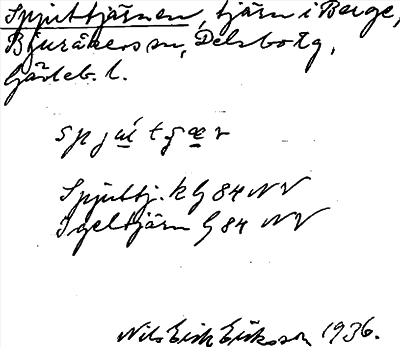 Spjuttjärnen, tjärn i Berge,
Bjuråkers sn, Delsbo tg,
Gävleb. l.
Spjuttj. k G 84 NV
Igeltjärn G 84 NV
Nils Erik Eriksson 1936.